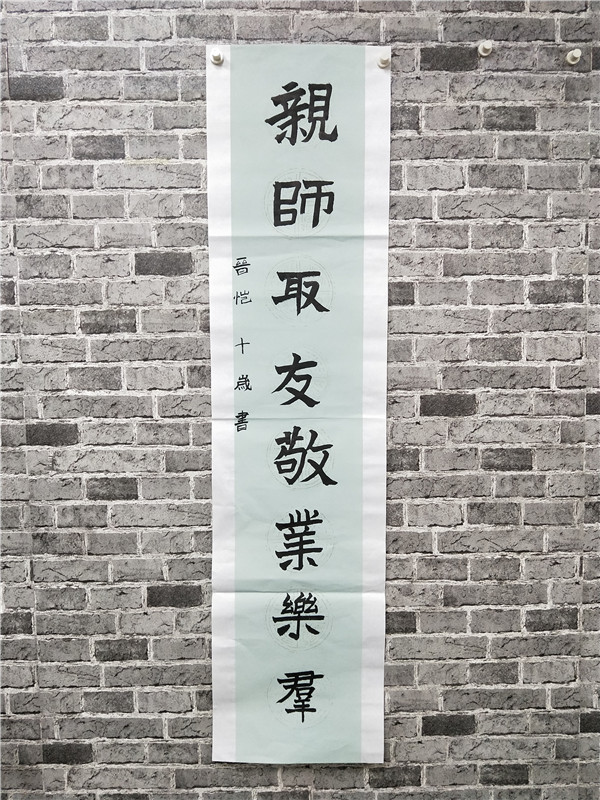 親師取友敬業樂羣
晉恺十歲書